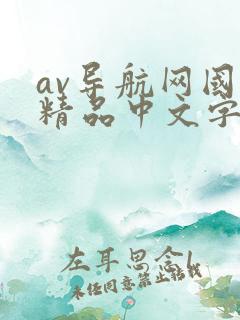 av导航网国
精品中文字
左耳思念l
未经同意禁止转载